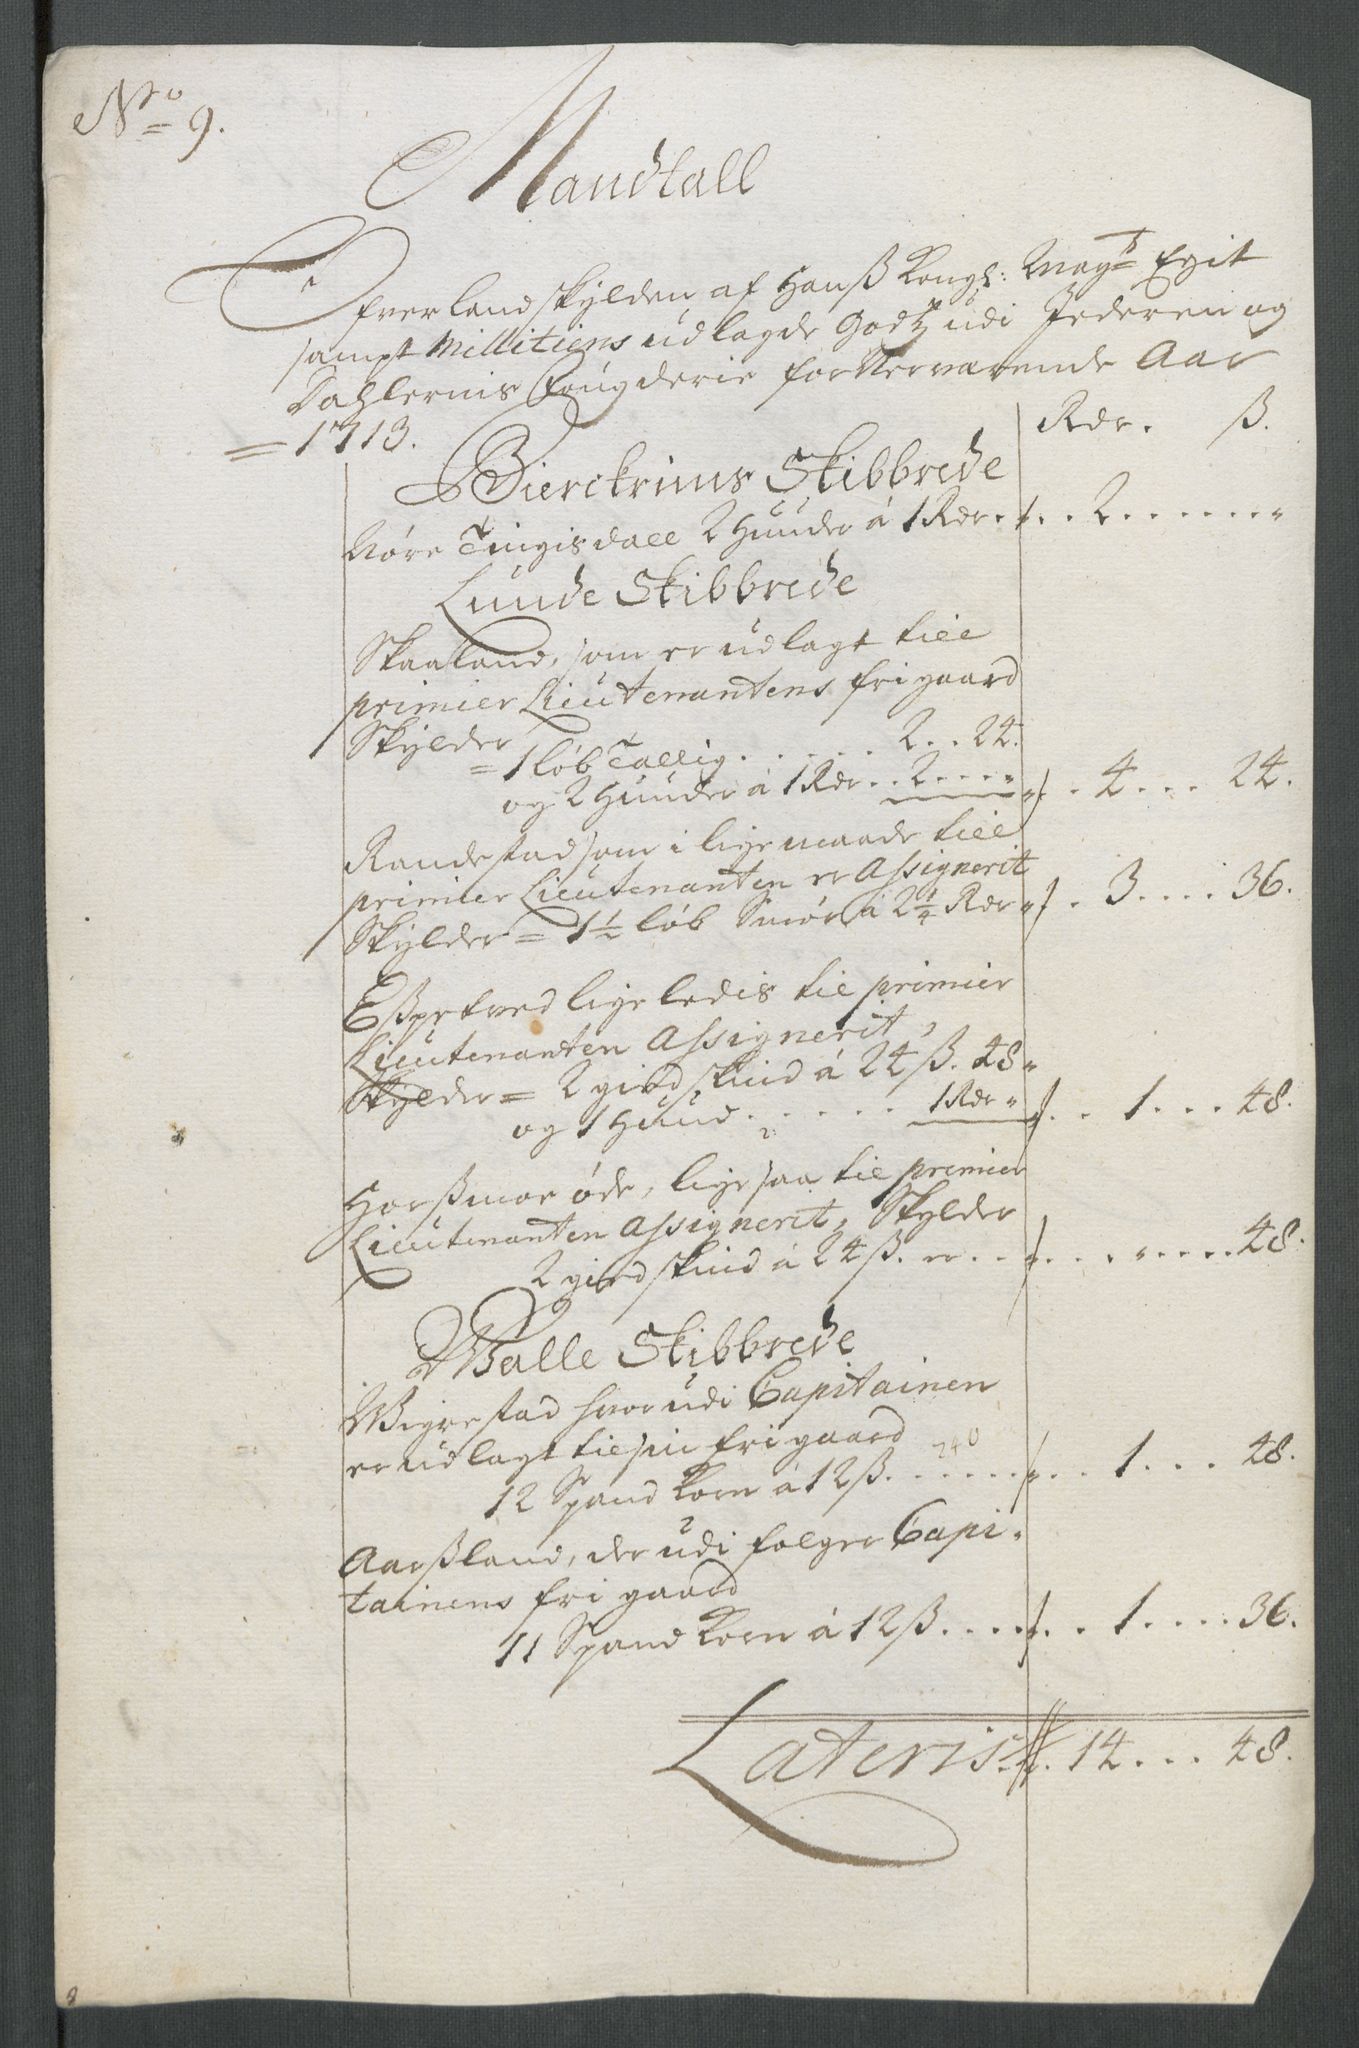 No 9.
Mandtall
Ofver landskylden af Hanß Kongl: Mayts Egit
sampt Millitiens udlagde Godtz udi Jederen og
Dahlernis Fougderie for Nerværende Aar
1713.
Rdr. ß.
Bierckrims Skibbrede
Nöre Tingisdall 2 Huuder á 1 Rdr. . 2 . . . . . . . "
Lunde Skibbrede
Skaaland, som er udlagt till
primier Lieutenantens frigaard
Skylder
= 1 löb Tallig . . . . . 2 . . 24.
og 2 Huuder á 1 Rdr . . 2 . . . . " . 4 . . . 24.
Raudestad som i lige maade till
primier Lieutenanten er Assignerit
Skylder = 1½ löb Smör á 2¼ Rdr . 3 . . . . 36.
Eßpetved ligeledis til primier
Lieutenanten Assignerit,
Skylder = 2 giedskind á 24 ß. 48 "
og 1 Huud . . . . . . 1 Rdr " . . 1 . . . 48.
Horßmoe öde, ligesaa til premier
Lieutenanten Assignerit, Skylder
2 giedskind á 24 ß. er . . . . . " . . . . 48.
Walle Skibbrede
Wigrestad hvorudi Capitainen
er udlagt til sin frigaard
240
12 Spand Korn á 12 ß. . . . . . . . 1 . . . 48.
Aarßland, der udi følger Capi-
tainens fri gaard
11 Spand Korn á 12 ß . . . . . . 1 . . . . 36.
Lateris . 14 . . . 48.
8